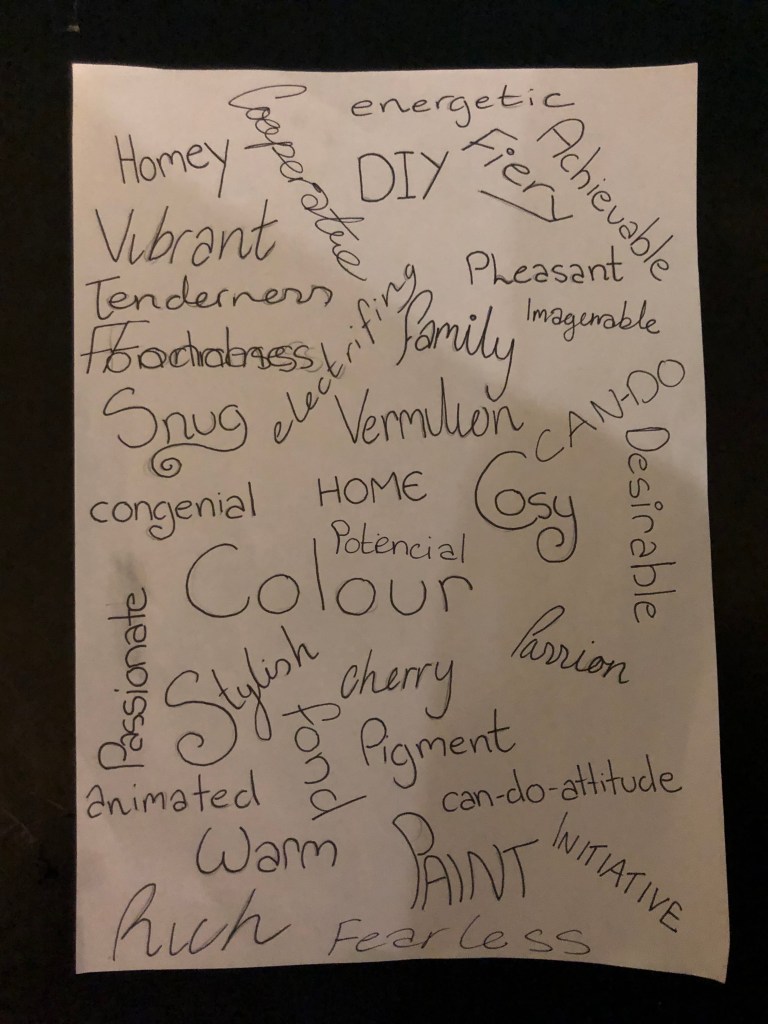 energetic
Cooperative
Homey
DIY
Fiery
Achievable
Vibrant
Pleasant
Tenderness
electrifing
family
Imagenable
Snug
Vermilion
CAN-DO
congenial
HOME
Cosy
Desirable
Potencial
Colour
Passionate
Stylish
cherry
Passion
fond
Pigment
animated
can-do-attitude
Warm
PAINT
INITIATIVE
Rich
Fearless